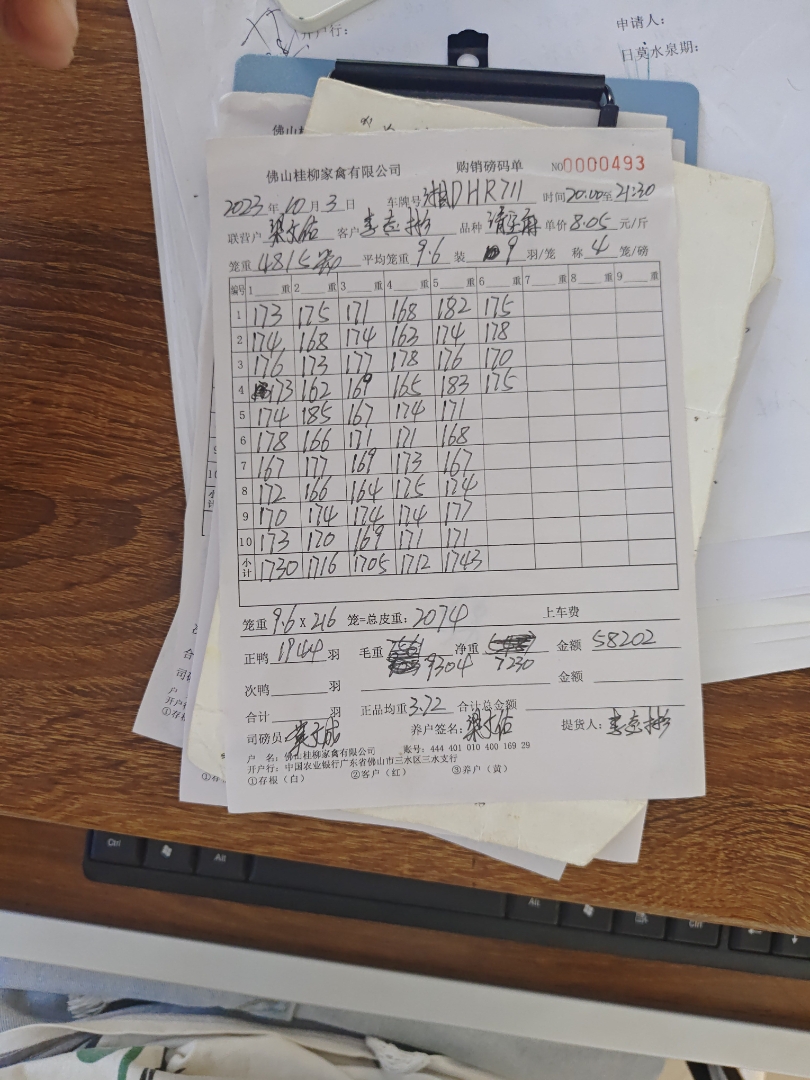 开户行:
申请人:
佛山桂
佛山桂柳家禽有限公司 购销磅码单 NO0000493
2023年10月3日 车牌号湘DHR711 时间20:00至21:30
联营户 客户 品种 单价8.05元/斤
笼重4815 平均笼重9.6 装9羽/笼 称4笼/磅
编号 1 重 2 重 3 重 4 重 5 重 6 重 7 重 8 重 9 重
1 173 175 171 168 182 175
2 174 168 174 163 174 178
3 176 173 177 178 176 170
4 173 162 169 165 183 175
5 174 185 167 174 171
6 178 166 171 171 168
7 167 177 169 173 167
8 172 166 164 175 174
9 170 174 174 174 177
10 173 170 169 171 171
小计 1730 1716 1705 1712 1743
笼重9.6x216笼=总皮重:2074 上车费
正鸭1944羽 毛重 净重 金额58202
9304 7230
次鸭 羽 金额
合计 羽 正品均重3.72 合计总金额
司磅员: 养户签名: 提货人:
户 名:佛山桂柳家禽有限公司 账号:444 401 010 400 169 29
开户行:中国农业银行广东省佛山市三水区三水支行
①存根(白) ②客户(红) ③养户(黄)
Ctrl Alt Alt Ctrl